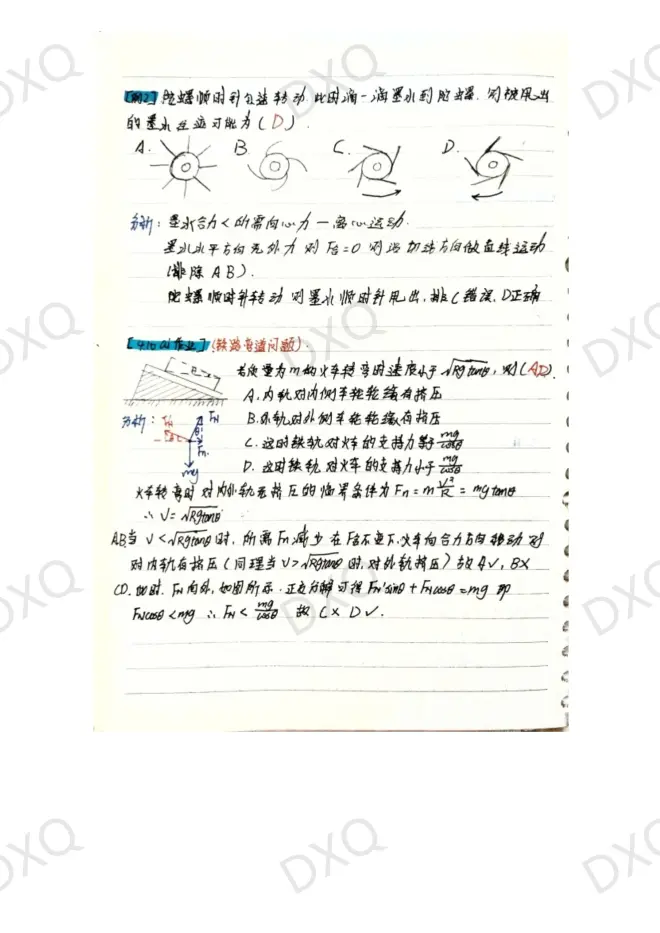 [例2] 陀螺顺时针匀速转动,此时滴一滴墨水到陀螺,则被甩出
的墨水径迹可能为(D).
A. B. C. D.
分析:墨水合力<所需向心力—离心运动.
墨水水平方向无外力 则F合=0 则沿切线方向做直线运动
(排除AB).
陀螺顺时针转动 则墨水顺时针甩出,排C错误,D正确
作业](铁路弯道问题).
若质量为m的火车转弯时速度小于√Rgtanθ,则(AD).
A.内轨对内侧车轮轮缘有挤压
B.外轨对外侧车轮轮缘有挤压
C.这时铁轨对火车的支持力等于mg/cosθ
D.这时铁轨对火车的支持力小于mg/cosθ
分析: FN FN Fn mg
火车转弯时对内外轨无挤压的临界条件为Fn=mV²/R=mgtanθ
∴V=√Rgtanθ
AB当V<√Rgtanθ时,所需Fn减少 在F合不变下,火车向合力方向移动 则
对内轨有挤压(同理当V>√Rgtanθ时,对外轨挤压)故A√,B×
CD.此时,FN向外,如图所示.正交分解可得FN'sinθ+FNcosθ=mg 即
FNcosθ<mg ∴FN<mg/cosθ 故C×D√.
DXQ